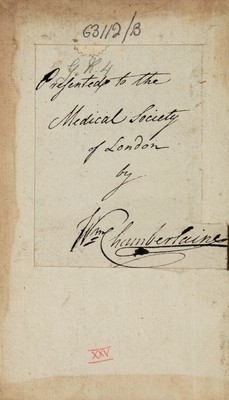 63112/B
G. K. 4
Presented to the
Medical Society
of London
by
Wm Chamberlaine
XXV